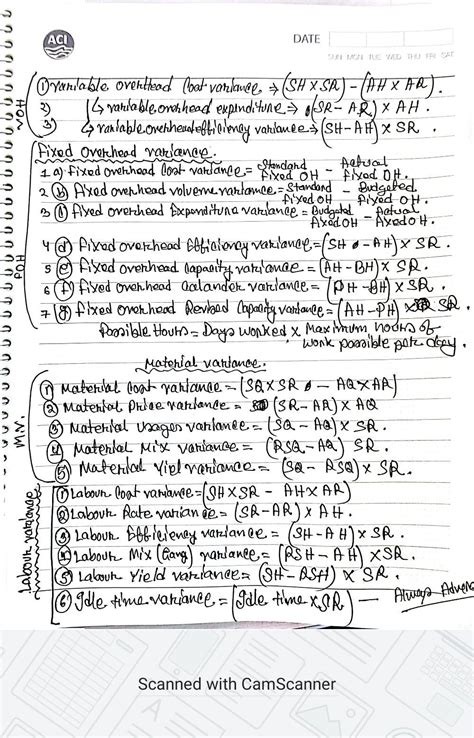 ACI
DATE
SUN MON TUE WED THU FRI SAT
VOH
① Variable overhead Cost variance ⇒ (SH × SR) - (AH × AR).
2) ↳ variable overhead expenditure ⇒ (SR - AR) × AH.
3) ↳ variable overhead efficiency variance ⇒ (SH - AH) × SR.
FOH
Fixed Overhead variance.
1 a) Fixed overhead Cost variance = Standard Fixed OH - Actual Fixed OH.
2 ⓑ Fixed overhead volueme variance = Standard Fixed OH - Budgeted Fixed OH.
3 ⓒ Fixed overhead Expenditure variance = Budgeted Fixed OH - Actual Fixed OH.
4 ⓓ Fixed overhead Efficiency variance = (SH - AH) × SR.
5 ⓔ Fixed overhead capacity variance = (AH - BH) × SR.
6 ⓕ Fixed overhead Calander variance = (PH - BH) × SR.
7 ⓖ Fixed overhead Revised Capacity variance = (AH - PH) × SR.
Possible Hours = Days worked × Maximum hours of
work possible per day.
Material variance.
M.V.
① Material Cost variance = (SQ × SR - AQ × AR)
② Material Price variance = (SR - AR) × AQ
③ Material usages variance = (SQ - AQ) × SR.
④ Material Mix variance = (RSQ - AQ) SR.
⑤ Material Yiel variance = (SQ - RSQ) × SR.
Labour variance
① Labour Cost variance = (SH × SR - AH × AR)
② Labour Rate variance = (SR - AR) × AH.
③ Labour Efficiency variance = (SH - AH) × SR.
④ Labour Mix (Gang) variance = (RSH - AH) × SR.
⑤ Labour Yield variance = (SH - RSH) × SR.
⑥ Idle time variance = (Idle time × SR) — Always
Scanned with CamScanner